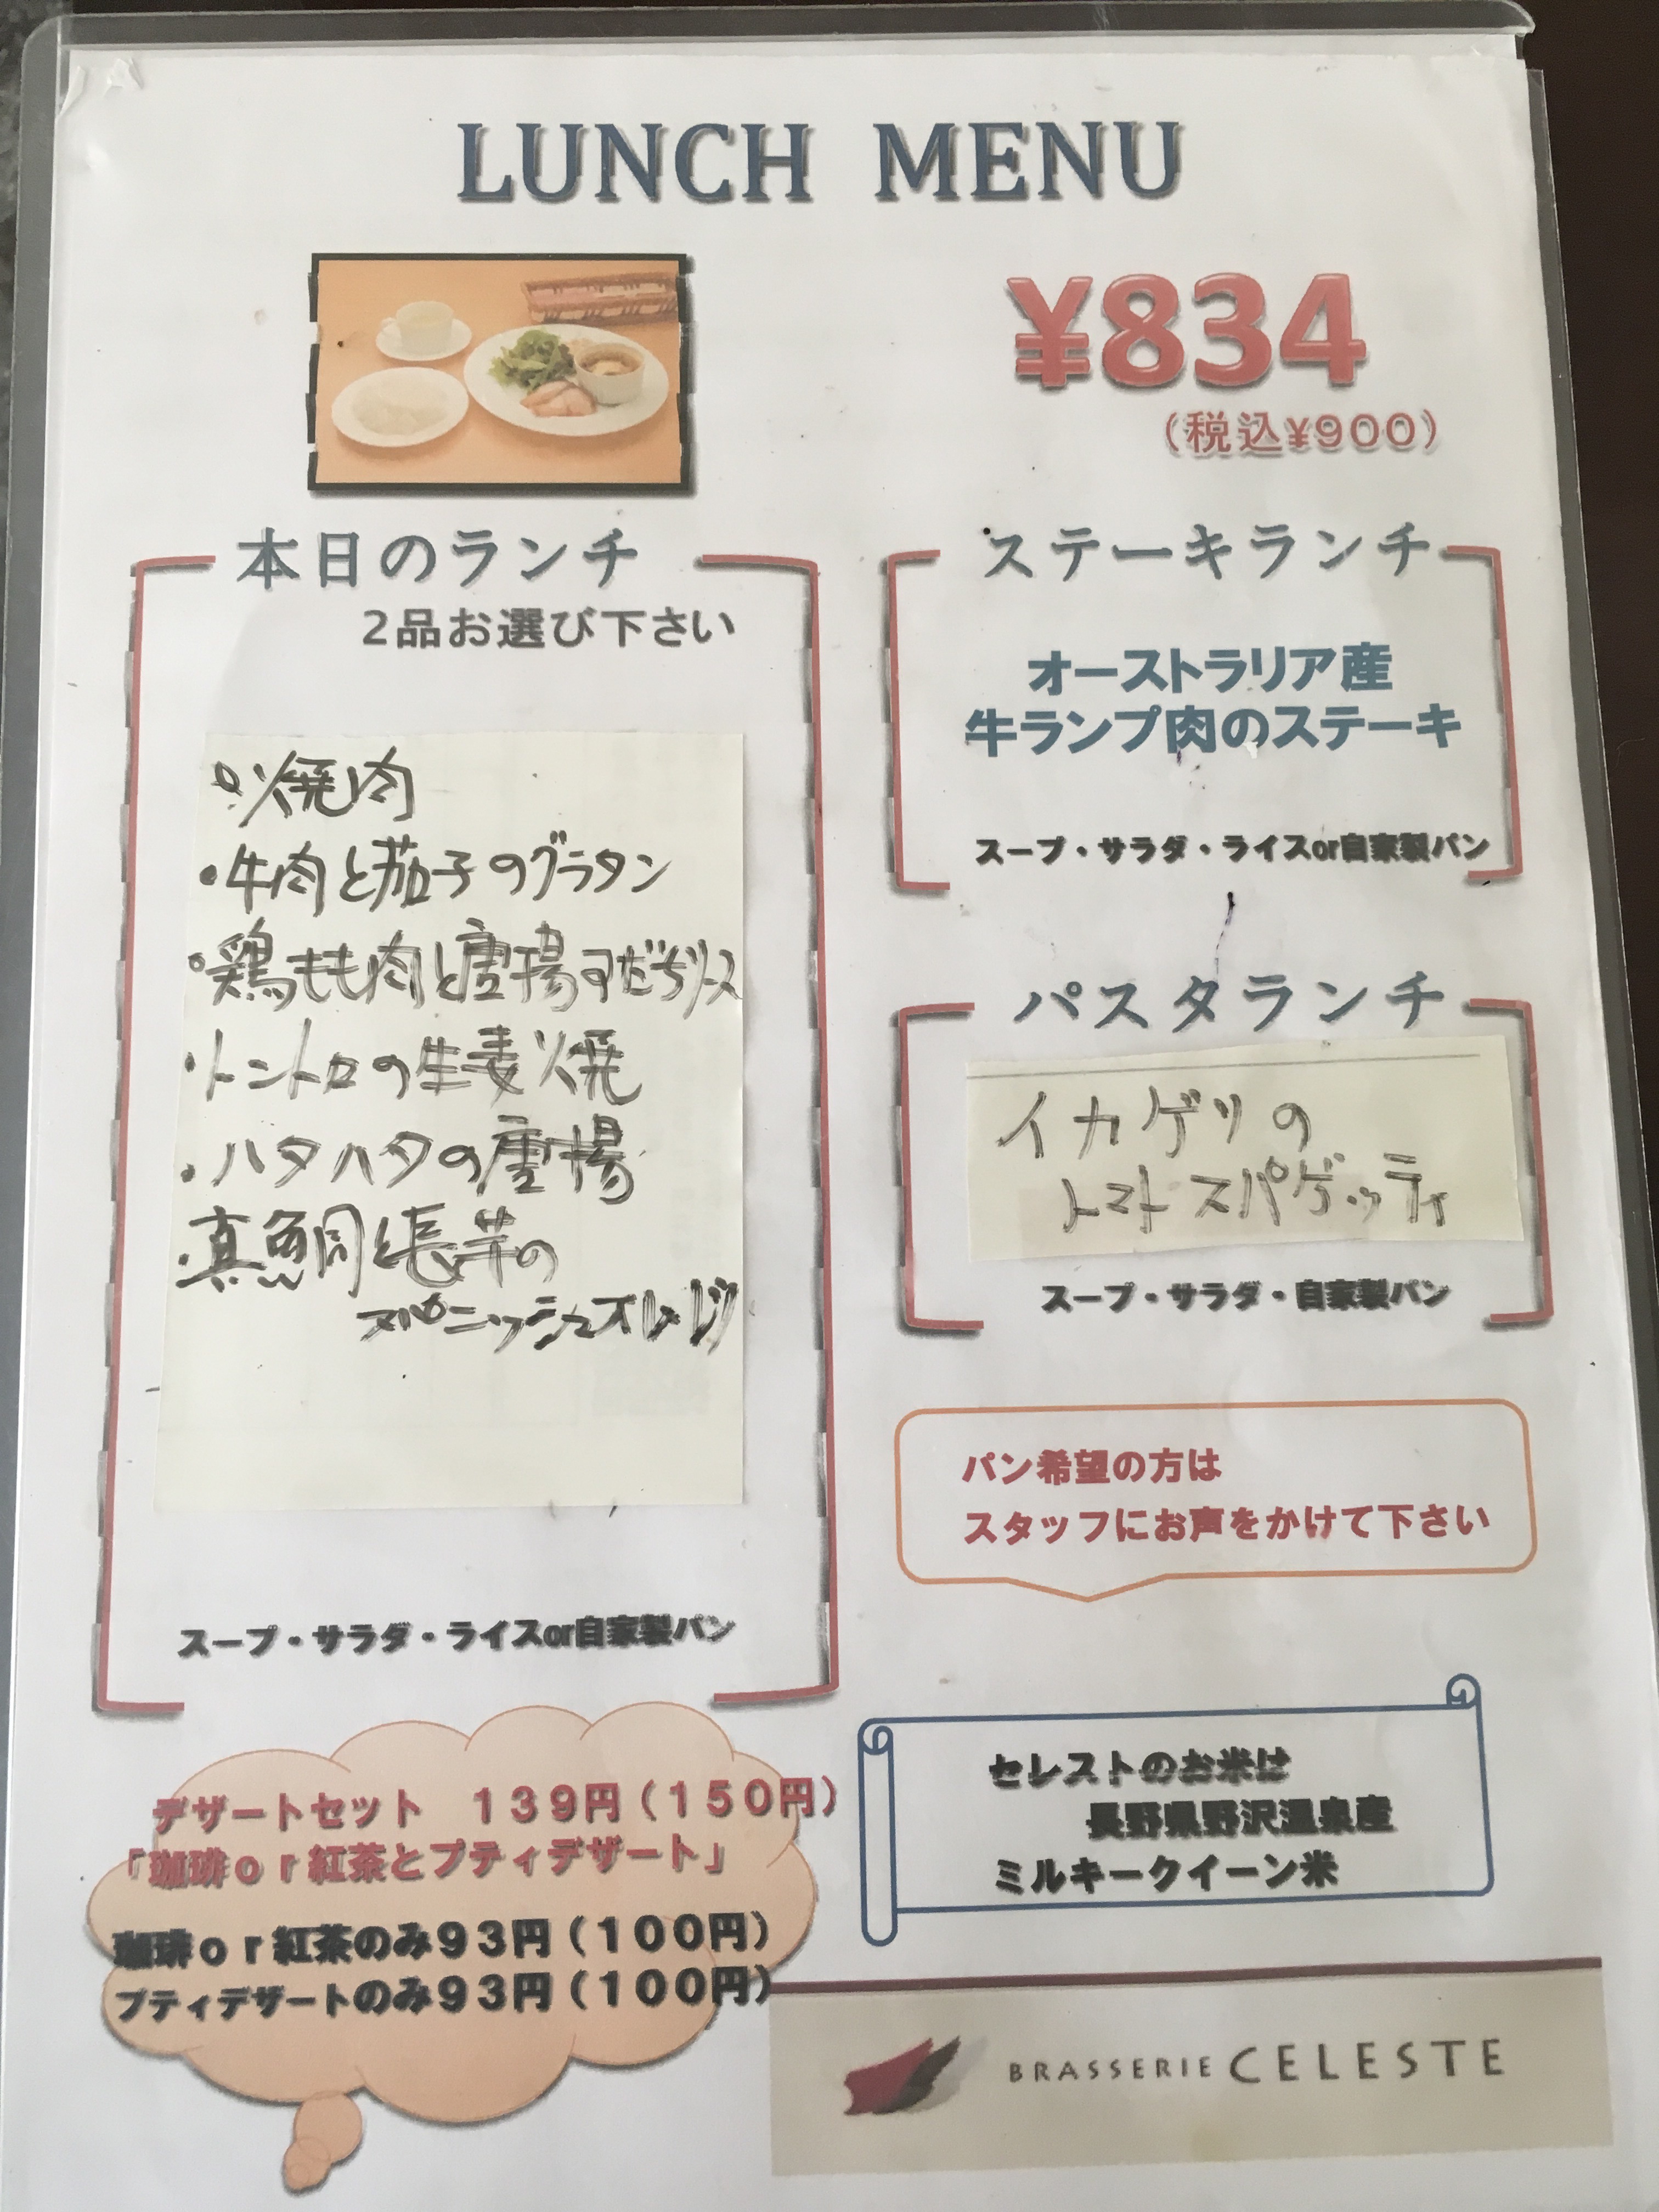 LUNCH MENU
¥834
(税込¥900)
本日のランチ
2品お選び下さい
・焼肉
・牛肉と茄子のグラタン
・鶏もも肉と唐揚すだちソース
・トントロの生姜焼
・ハタハタの唐揚
・真鯛と長芋の
スパニッシュオムレツ
スープ・サラダ・ライスor自家製パン
ステーキランチ
オーストラリア産
牛ランプ肉のステーキ
スープ・サラダ・ライスor自家製パン
パスタランチ
イカゲソの
トマトスパゲッティ
スープ・サラダ・自家製パン
パン希望の方は
スタッフにお声をかけて下さい
デザートセット 139円(150円)
「珈琲or紅茶とプティデザート」
珈琲or紅茶のみ93円(100円)
プティデザートのみ93円(100円)
セレストのお米は
長野県野沢温泉産
ミルキークイーン米
BRASSERIE CELESTE